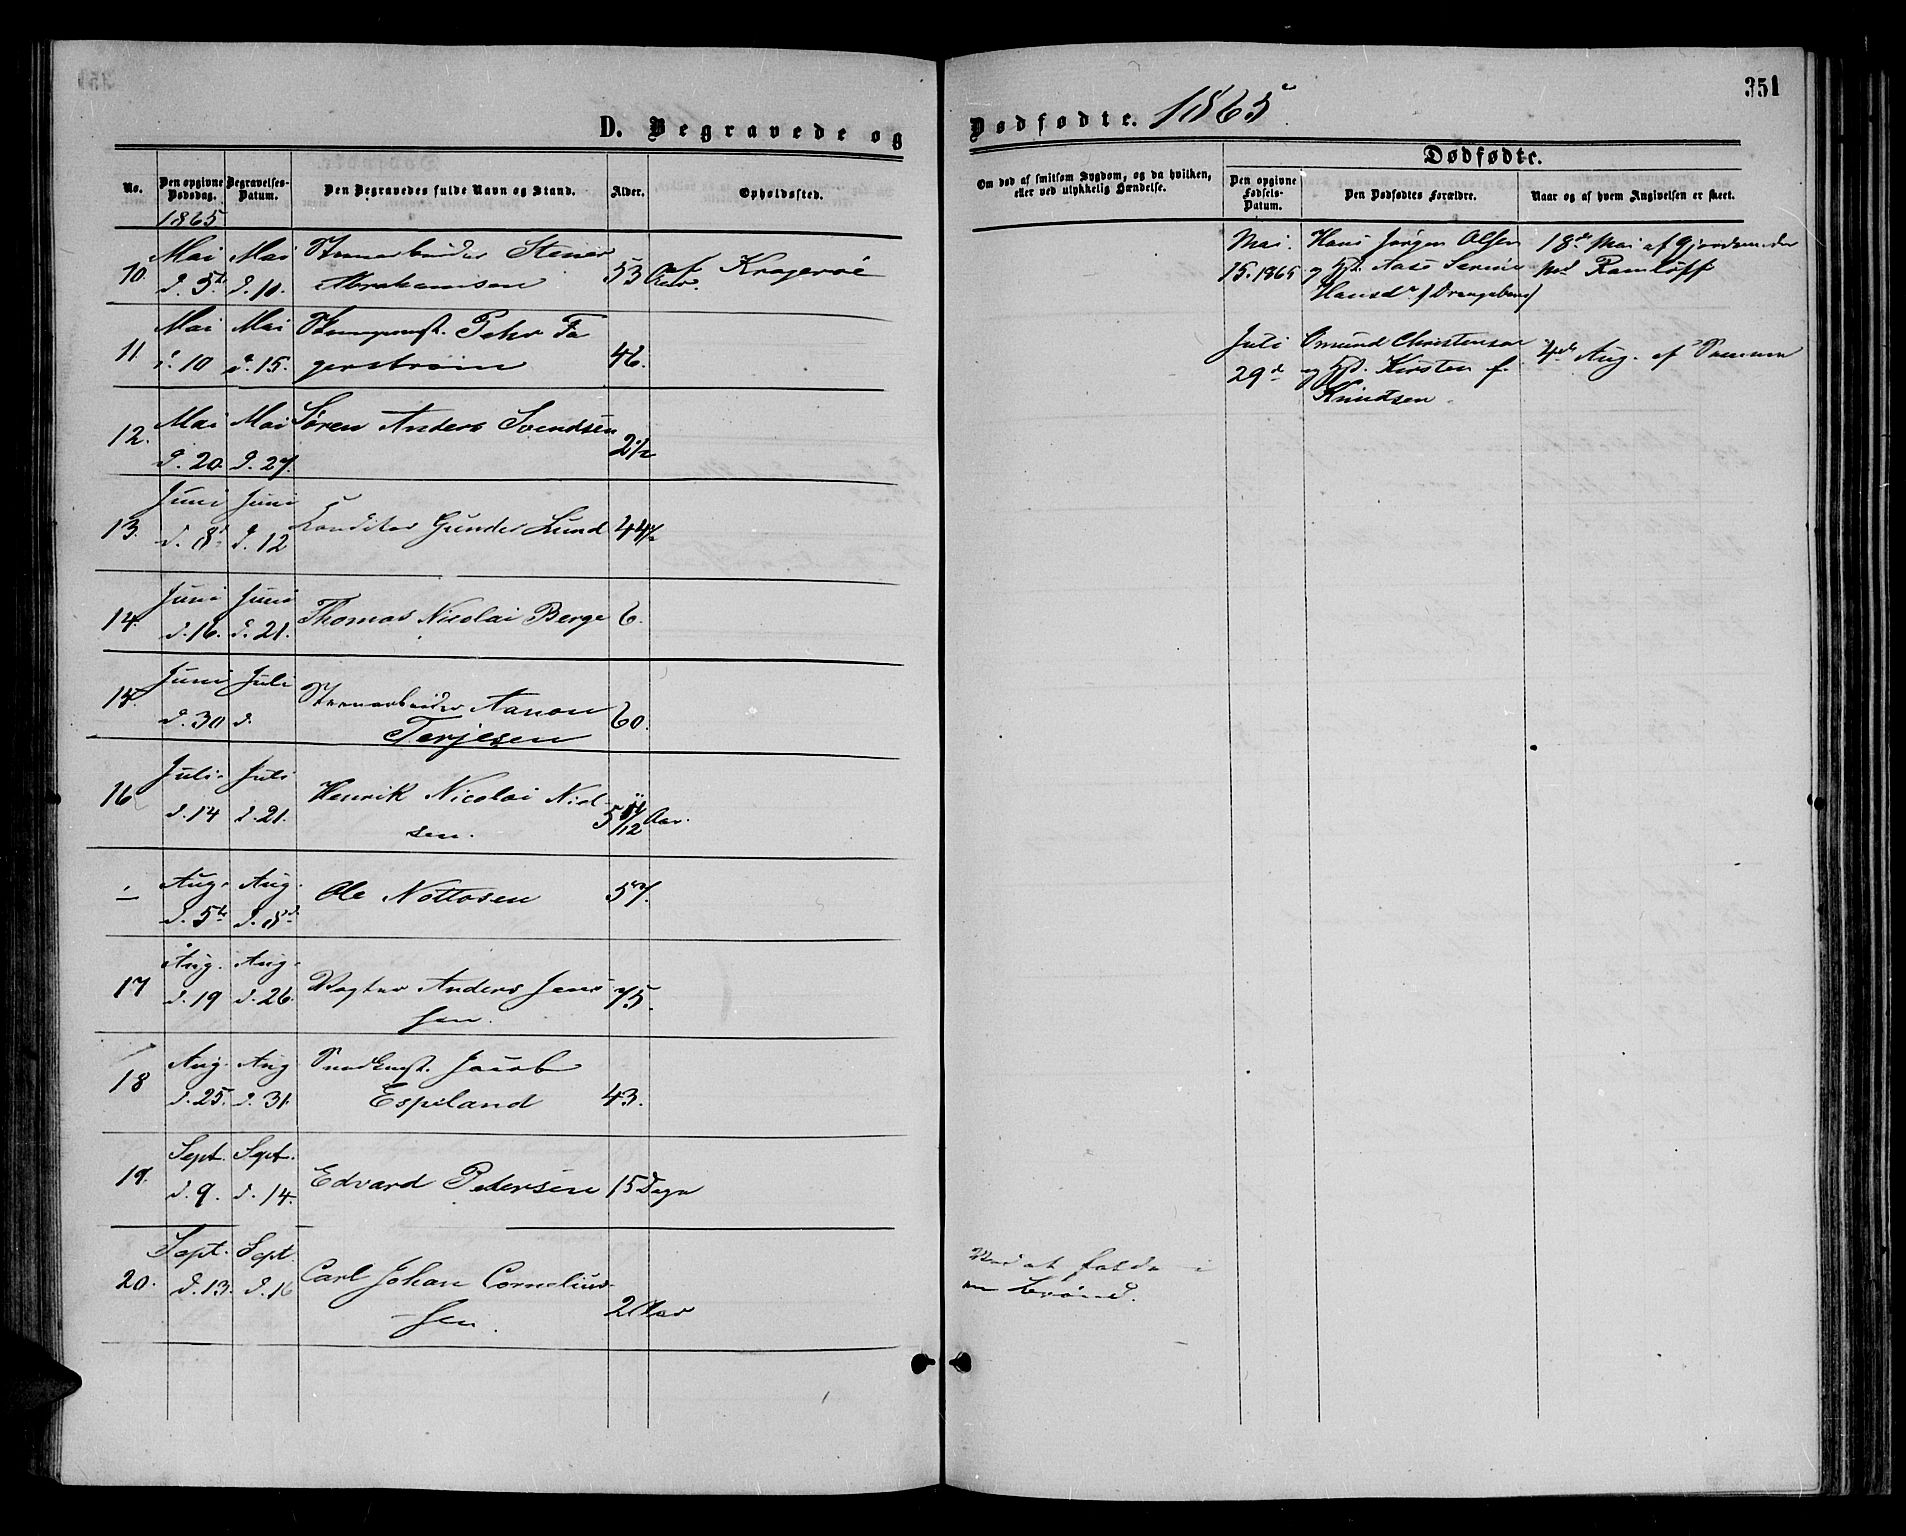 351
D. Begravede og Dødfødte. 1865
No.
Den opgivne Dødsdag.
Begravelses-Datum.
Den Begravedes fulde Navn og Stand.
Alder.
Opholdssted.
Om død af smitsom Sygdom, og da hvilken, eller ved ulykkelig Hændelse.
Dødfødte.
Den opgivne Fødsels-Datum.
Den Dødfødtes Forældre.
Naar og af hvem Angivelsen er skeet.
1865
10. Mai Mai Stener
d. 5te d. 10. Abrahamsen 53 Aar. af Kragerøe
11 Mai Mai Peter Fa
d. 10 d. 15. gerstrøm 46.
12. Mai Mai Søren Anders Svendsen
d. 20. d. 27. 2 1/2
13. Juni Juni Conditor Gunder Lund 44 1/2
d. 8d d. 12
14. Juni Juni Thomas Nicolai Berge 6.
d. 16. d. 21.
15. Juni Juli Aanon
d. 30 d. Terjesen 60.
16 Juli Juli Henrik Nicolai Niel-
d. 14 d. 21. sen. 5 11/12 Aar.
— Aug. Aug. Ole Nottosen 57.
d. 5te d. 8d
17 Aug. Aug. Vægter Anders Jens 75.
d. 19 d. 26. sen.
18 Aug. Aug Snedkmst. Jacob
d. 25. d. 31. Espeland 43.
19. Sept. Sept. Edvard Pedersen 15 Dage
d. 9. d. 14.
20. Sept. Sept. Carl Johan Cornelius-
d. 13. d. 16 sen. 2 Aar
Ved at falde i
en Brønd.
Mai. Hans Jørgen Olsen 18de Mai af Gjordemoder
15. 1865 og Hst. Aase Serine Md Ramløff
Hansdr (Drangsbang)
Juli Omund Christensen 4de Aug. af Samme
29d og Hst. Kirsten f.
Knudsen.